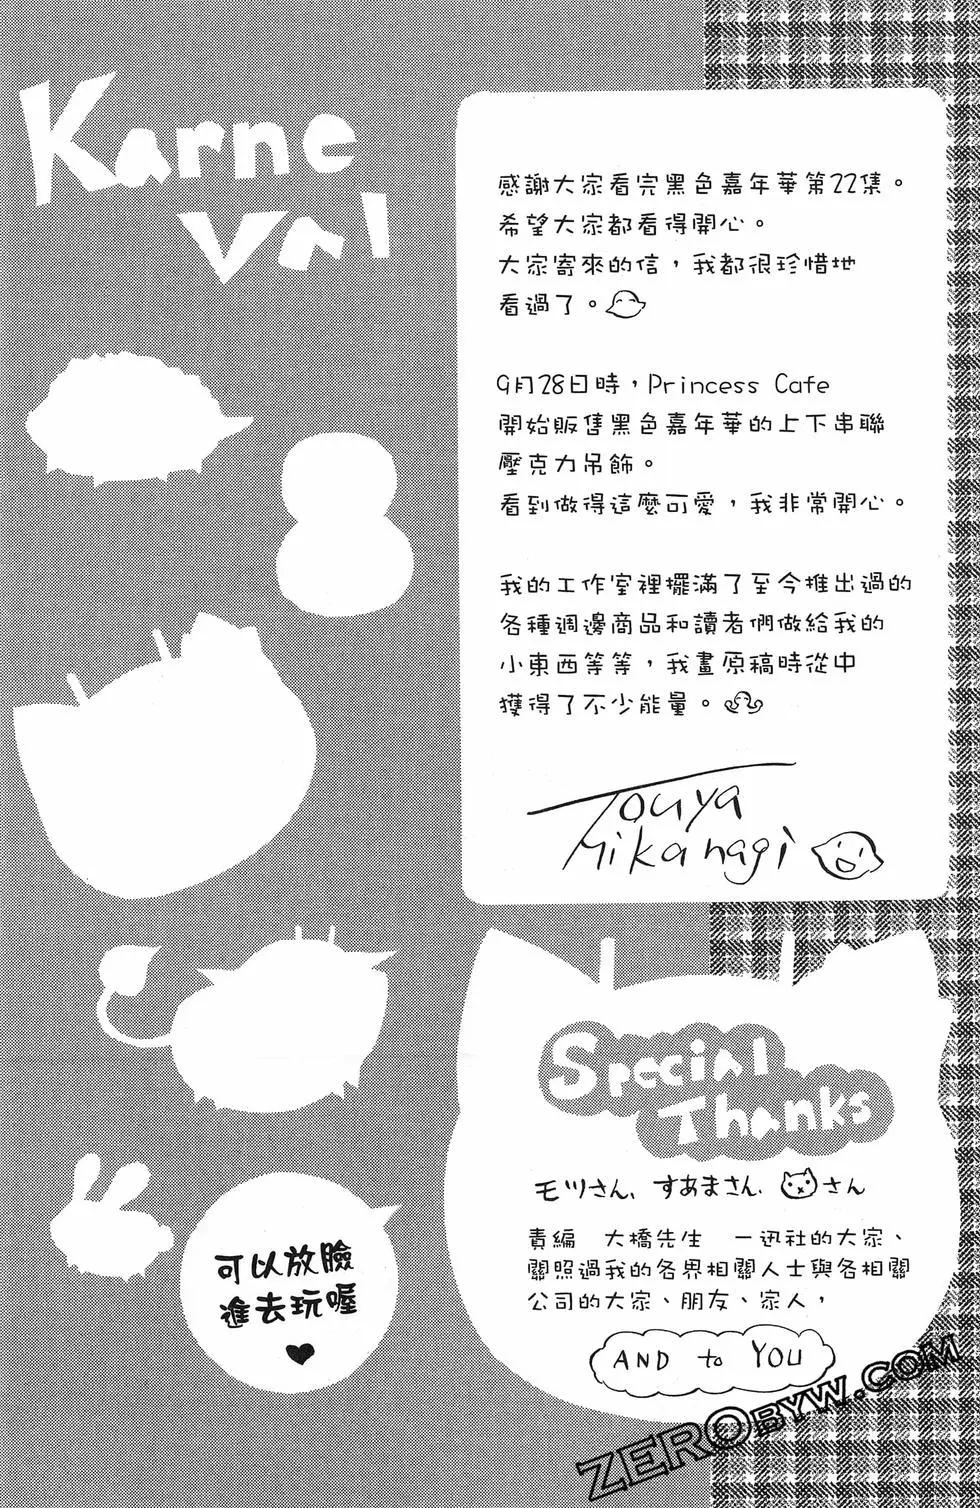 Karne
Val
感謝大家看完黑色嘉年華第22集。
希望大家都看得開心。
大家寄來的信，我都很珍惜地
看過了。
9月28日時，Princess Cafe
開始販售黑色嘉年華的上下串聯
壓克力吊飾。
看到做得這麼可愛，我非常開心。
我的工作室裡擺滿了至今推出過的
各種週邊商品和讀者們做給我的
小東西等等，我畫原稿時從中
獲得了不少能量。
Touya
Mikanagi
Special
Thanks
モツさん、すあまさん、さん
責編　大橋先生　一迅社的大家、
關照過我的各界相關人士與各相關
公司的大家、朋友、家人，
AND to YOU
可以放臉
進去玩喔
ZEROBYW.COM